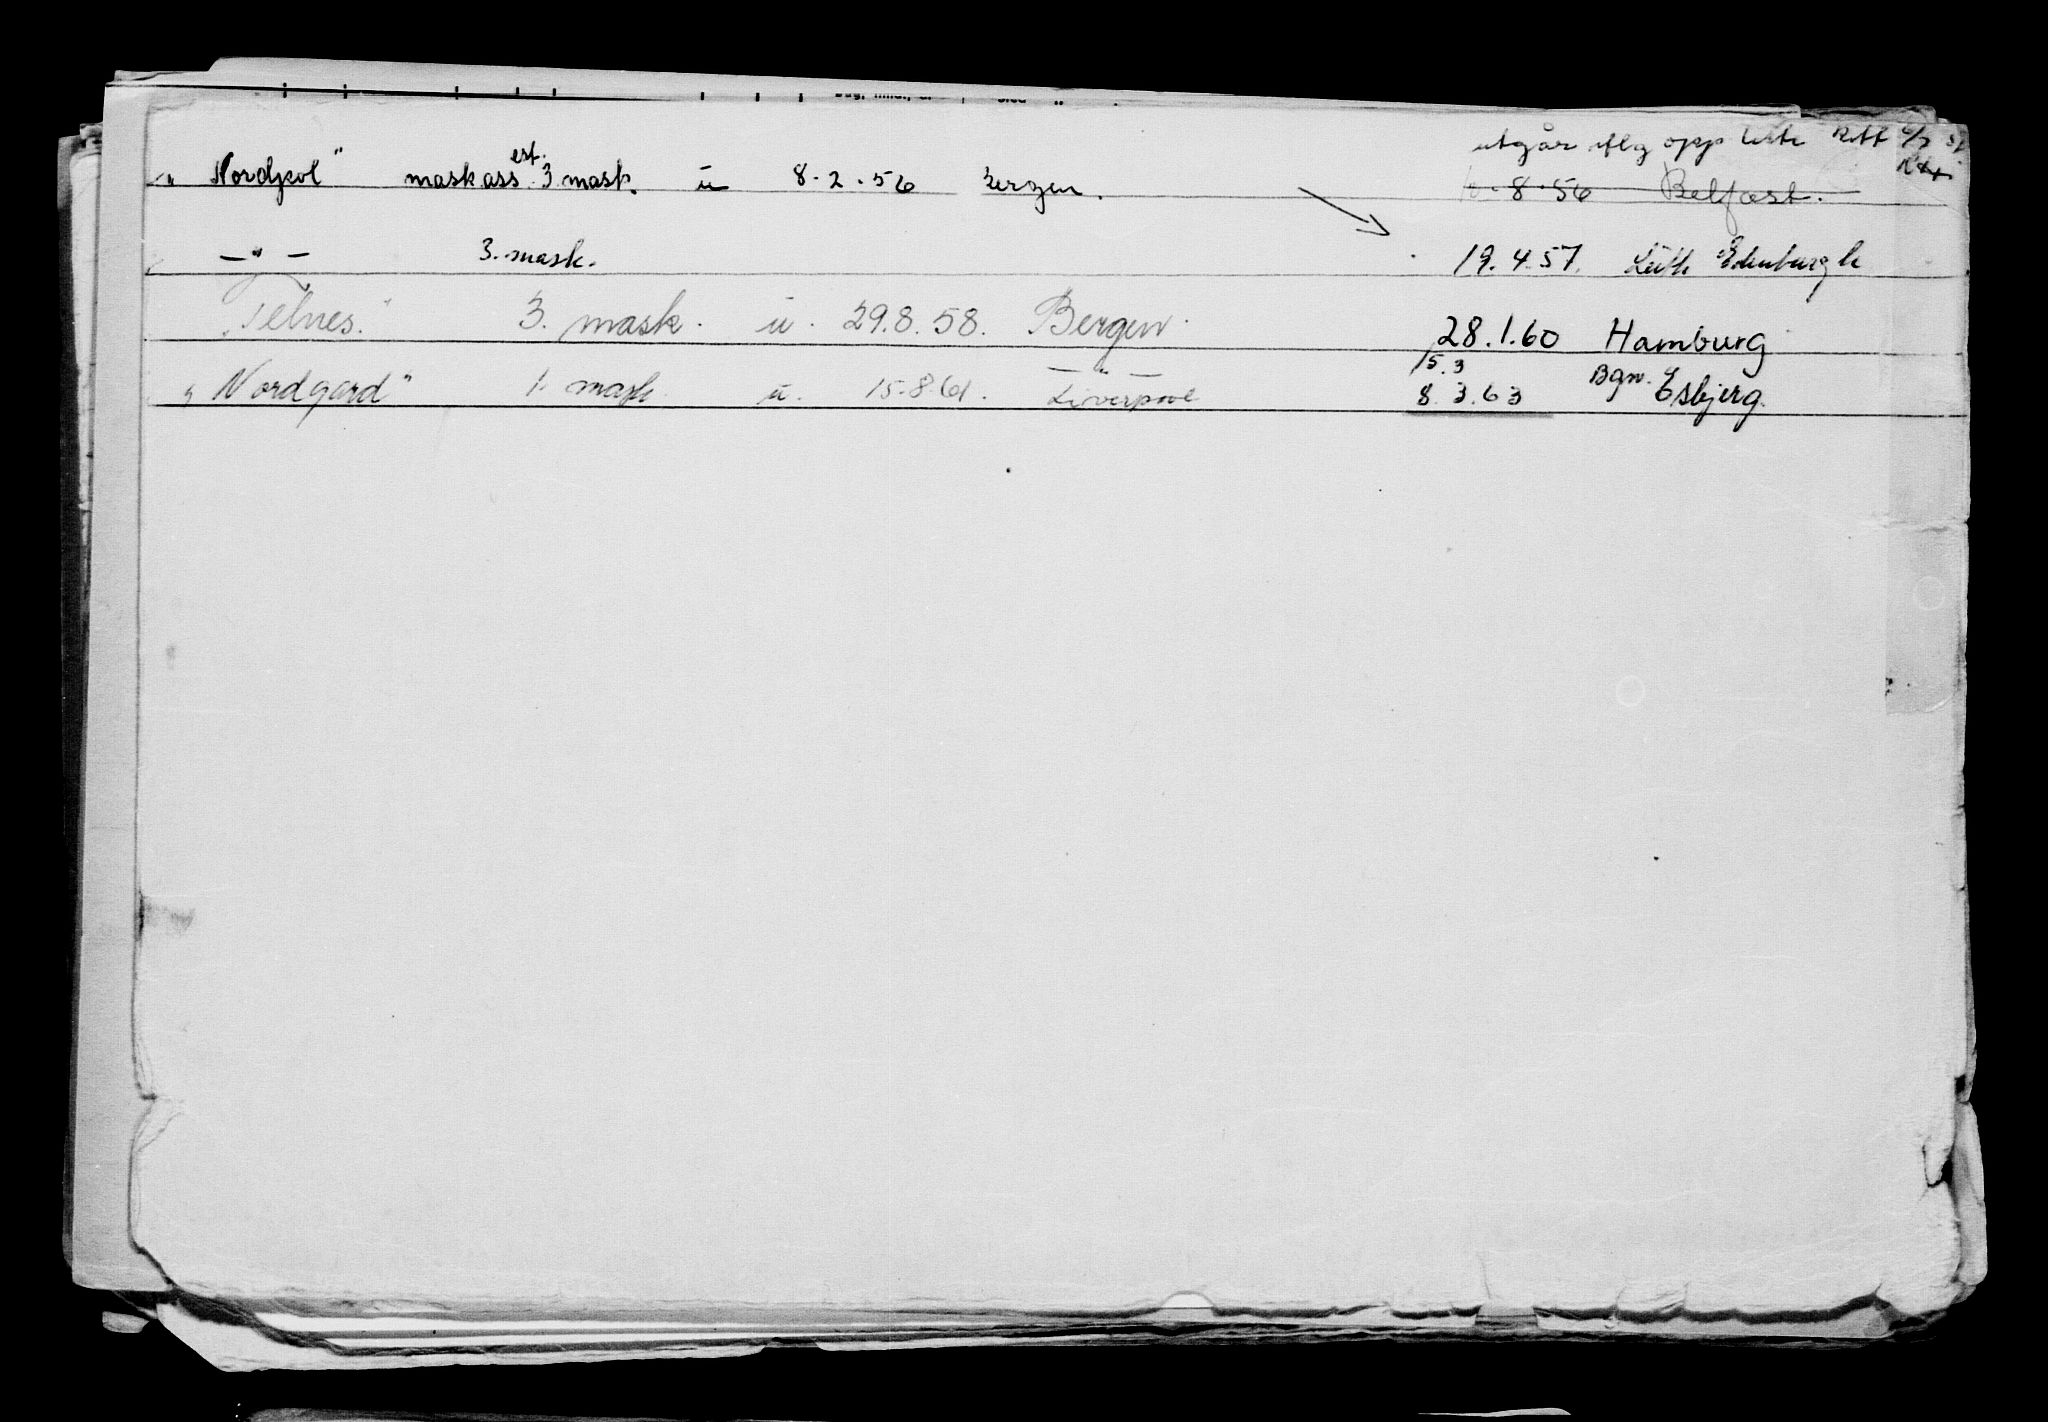 utgår iflg opp liste Rtt
"Nordpol" maskass. est. 3 mask. u 8.2.56 Bergen. 8.56 Belfast.
— " — 3. mask. 19.4.57. Leith Edinburgh
"Telnes." 3. mask. u. 29.8.58. Bergen. 28.1.60 Hamburg
— " — 15.3 Bgn.
"Nordgard" 1. mask. u. 15.8.61. Liverpool 8.3.63 Esbjerg.